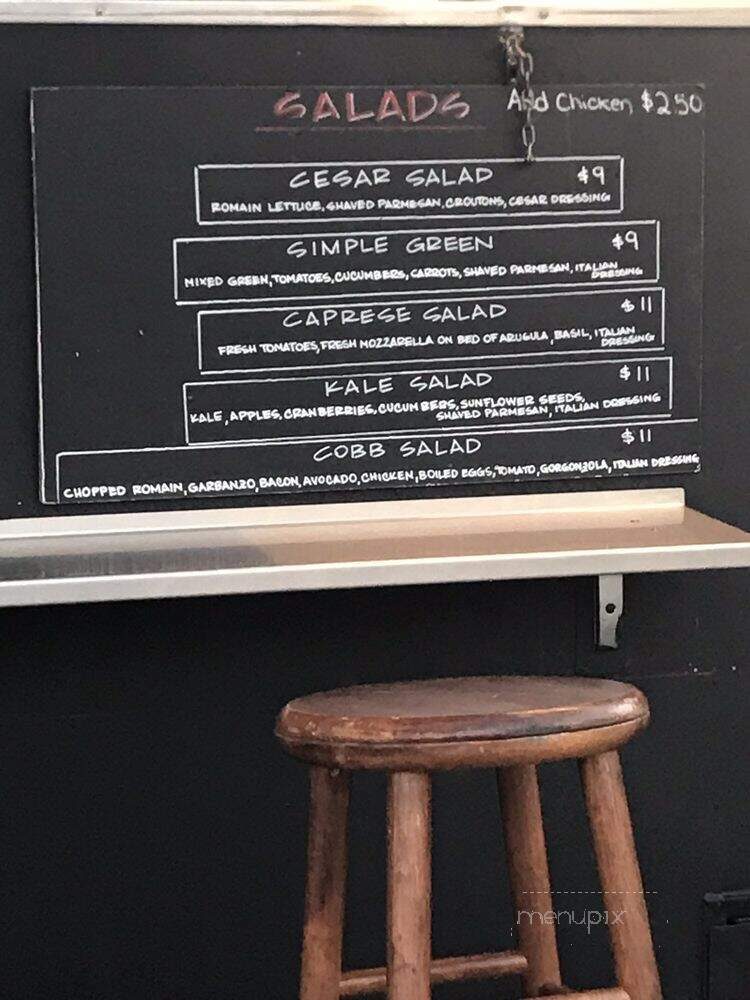 SALADS Add Chicken $2.50
CESAR SALAD $9
ROMAIN LETTUCE, SHAVED PARMESAN, CROUTONS, CESAR DRESSING
SIMPLE GREEN $9
MIXED GREEN, TOMATOES, CUCUMBERS, CARROTS, SHAVED PARMESAN, ITALIAN
DRESSING
CAPRESE SALAD $11
FRESH TOMATOES, FRESH MOZZARELLA ON BED OF ARUGULA, BASIL, ITALIAN
DRESSING
KALE SALAD $11
KALE, APPLES, CRANBERRIES, CUCUMBERS, SUNFLOWER SEEDS,
SHAVED PARMESAN, ITALIAN DRESSING
COBB SALAD $11
CHOPPED ROMAIN, GARBANZO, BACON, AVOCADO, CHICKEN, BOILED EGGS, TOMATO, GORGONZOLA, ITALIAN DRESSING
menupix